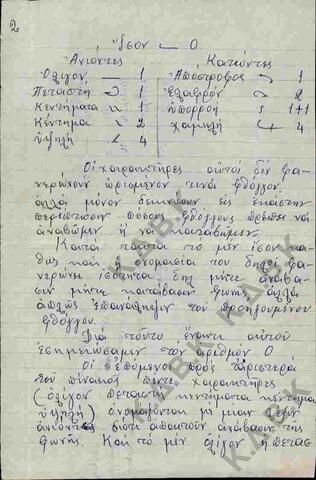 2
Ἴσον 0
Ἀνιόντες Κατιόντες
Ὀλίγον 1 Ἀπόστροφος 1
Πεταστή 1 Ἐλαφρόν 2
Κεντήματα 1 ὑπορροή 1+1
Κέντημα 2 Χαμηλή 4
ὑψηλή 4
Οἱ χαρακτῆρες αὐτοί δέν φα-
νερώνουν ὡρισμένον τινά φθόγγον
ἀλλά μόνον δεικνύουν εἰς ἑκάστην
περίπτωσιν πόσους φθόγγους πρέπει νά
ἀναβῶμεν ἤ νά καταβῶμεν.
Κατά ταῦτα τό μέν ἴσον κα-
θώς καί ἡ ὀνομασία του δηλοῖ φα-
νερώνει ἰσότητα δηλ μήτε ἀνάβα-
σιν μήτε κατάβασιν φωνῆς ἀλλά
ἁπλῶς ἐπανάληψιν τοῦ προηγουμένου
φθόγγου.
Διά τοῦτο ἔναντι αὐτοῦ
ἐσημειώσαμεν τόν ἀριθμόν 0
Οἱ ἑπόμενοι πρός τἀριστερά
τοῦ πίνακος πέντε χαρακτῆρες
(ὀλίγον πεταστή κεντήματα κέντημα
ὑψηλή) ὀνομάζονται μέ μίαν λέξιν
ἀνιόντες διότι ἀπαιτοῦν ἀνάβασιν τῆς
φωνῆς. Καί τό μέν ὀλίγον ἡ πετασ
Κ.Δ.Β.Κ